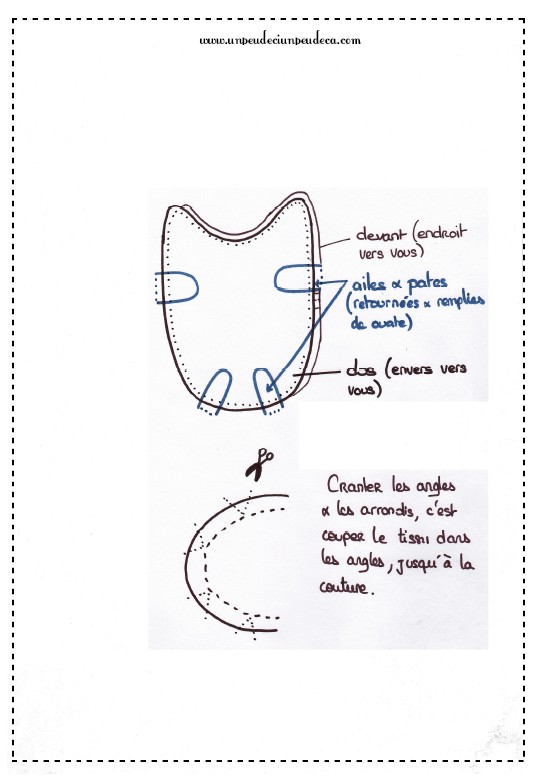 www.unpeudeciunpeudeca.com
devant (endroit
vers vous)
ailes & pates
(retournées & remplies
de ouate)
dos (envers vers
vous)
Cranter les angles
& les arrondis, c'est
couper le tissu dans
les angles, jusqu'à la
couture.